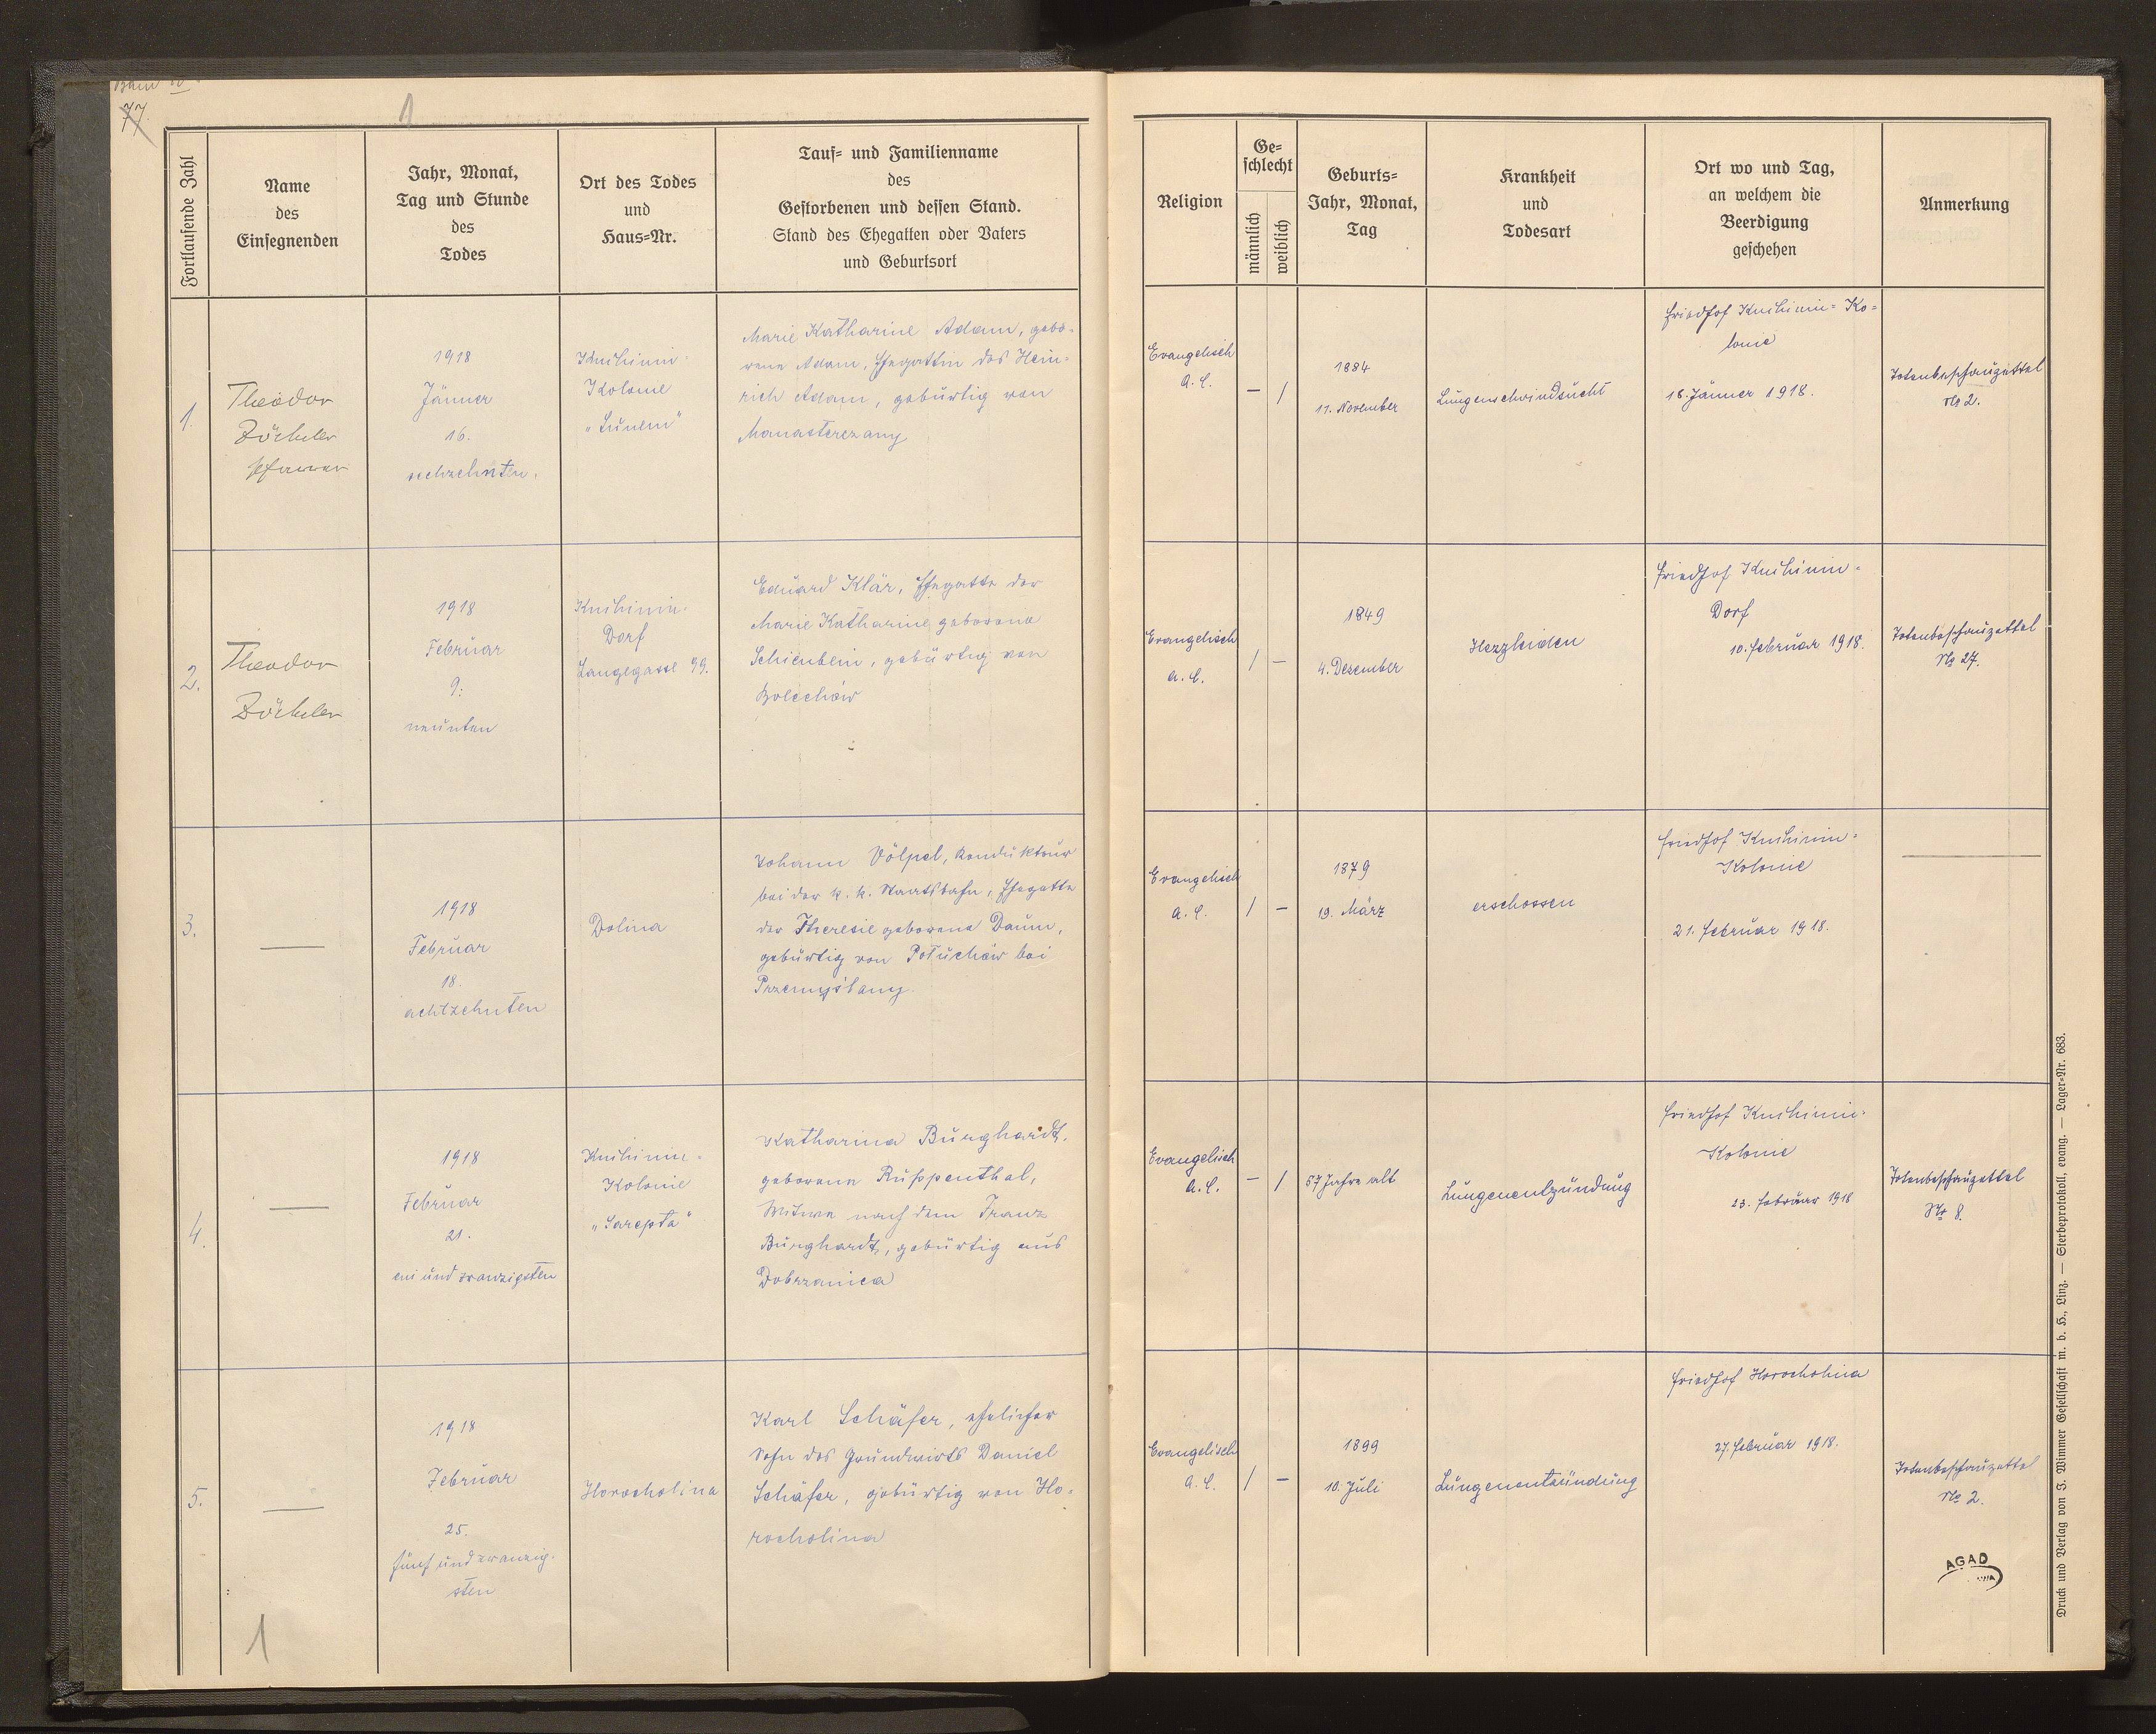 77.
1
Fortlaufende Zahl
Name
des
Einsegnenden
Jahr, Monat,
Tag und Stunde
des
Todes
Ort des Todes
und
Haus=Nr.
Tauf= und Familienname
des
Gestorbenen und dessen Stand.
Stand des Ehegatten oder Vaters
und Geburtsort
Religion
Ge=
schlecht
männlich
weiblich
Geburts=
Jahr, Monat,
Tag
Krankheit
und
Todesart
Ort wo und Tag,
an welchem die
Beerdigung
geschehen
Anmerkung
1.
Theodor
Zöckler
Pfarrer
1918
Jänner
16.
sechzehnten.
Knihinin=
Kolonie
"Lunem"
Marie Katharine Adam, gebo=
rene Adam, Ehegattin des Hein=
rich Adam, gebürtig von
Manasterczany
Evangelisch
A. C.
— /
1884
11. November
Lungenschwindsucht
Friedhof Knihinin=Ko=
lonie
18. Jänner 1918.
Totenbeschauzettel
No 2.
2.
Theodor
Zöckler
1918
Februar
9.
neunten
Knihinin=
Dorf
Langegasse 99.
Eduard Klär, Ehegatte der
Marie Katharine geborene
Schienbein, gebürtig von
Bolechów
Evangelisch
A. C.
/ —
1849
4. Dezember
Herzleiden
Friedhof Knihinin=
Dorf
10. Februar 1918.
Totenbeschauzettel
No 27.
3.
—
1918
Februar
18.
achtzehnten
Dolina
Johann Völpel, Kondukteur
bei der k. k. Staatsbahn, Ehegatte
der Theresie geborene Daum,
gebürtig von Połuchów bei
Przemyślany.
Evangelisch
A. C.
/ —
1879
19. März
erschossen
Friedhof Knihinin=
Kolonie
21. Februar 1918.
—
4.
—
1918
Februar
21.
ein und zwanzigsten
Knihinin=
Kolonie
"Sarepta"
Katharina Burghardt,
geborene Ruppenthal,
Witwe nach dem Franz
Burghardt, gebürtig aus
Dobrzanica
Evangelisch
A. C.
— /
57 Jahre alt
Lungenentzündung
Friedhof Knihinin=
Kolonie
23. Februar 1918
Totenbeschauzettel
No 8.
5.
—
1918
Februar
25.
fünf und zwanzig=
sten
Horocholina
Karl Schäfer, ehelicher
Sohn des Grundwirts Daniel
Schäfer, gebürtig von Ho=
rocholina
Evangelisch
A. C.
/ —
1899
10. Juli
Lungenentzündung
Friedhof Horocholina
27. Februar 1918.
Totenbeschauzettel
No 2.
AGAD
1
Druck und Verlag von J. Wimmer Gesellschaft m. b. H., Linz. — Sterbeprotokoll, evang. — Lager=Nr. 683.